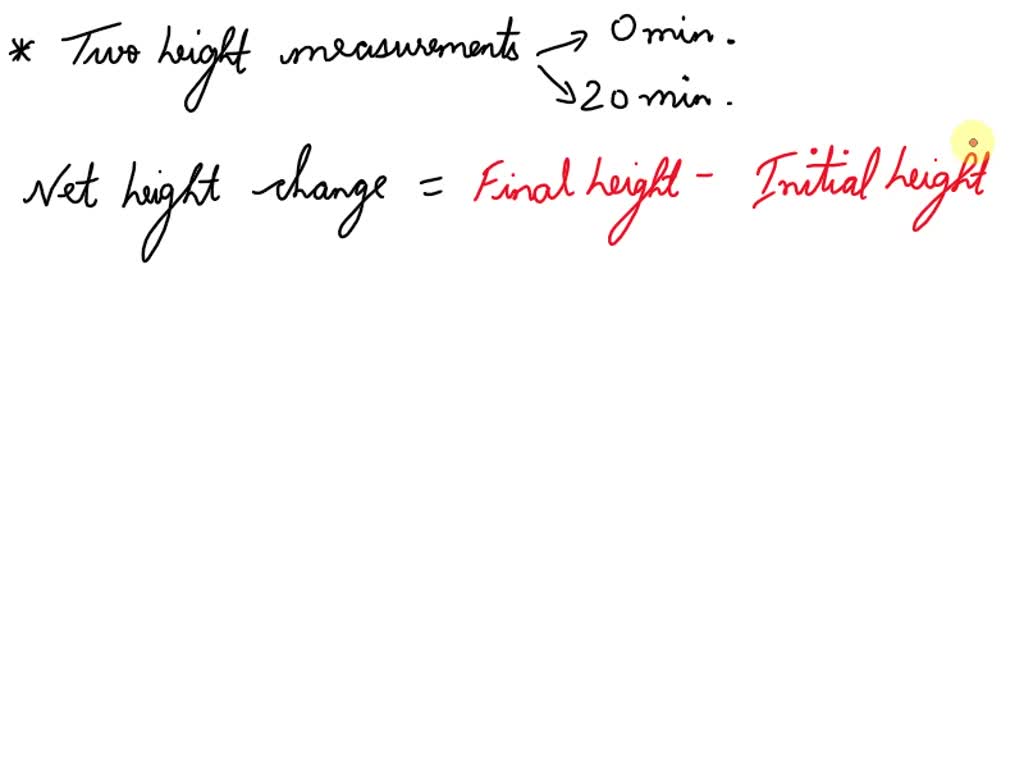 * Two height measurements → 0 min.
↘ 20 min.
Net height change = Final height - Initial height